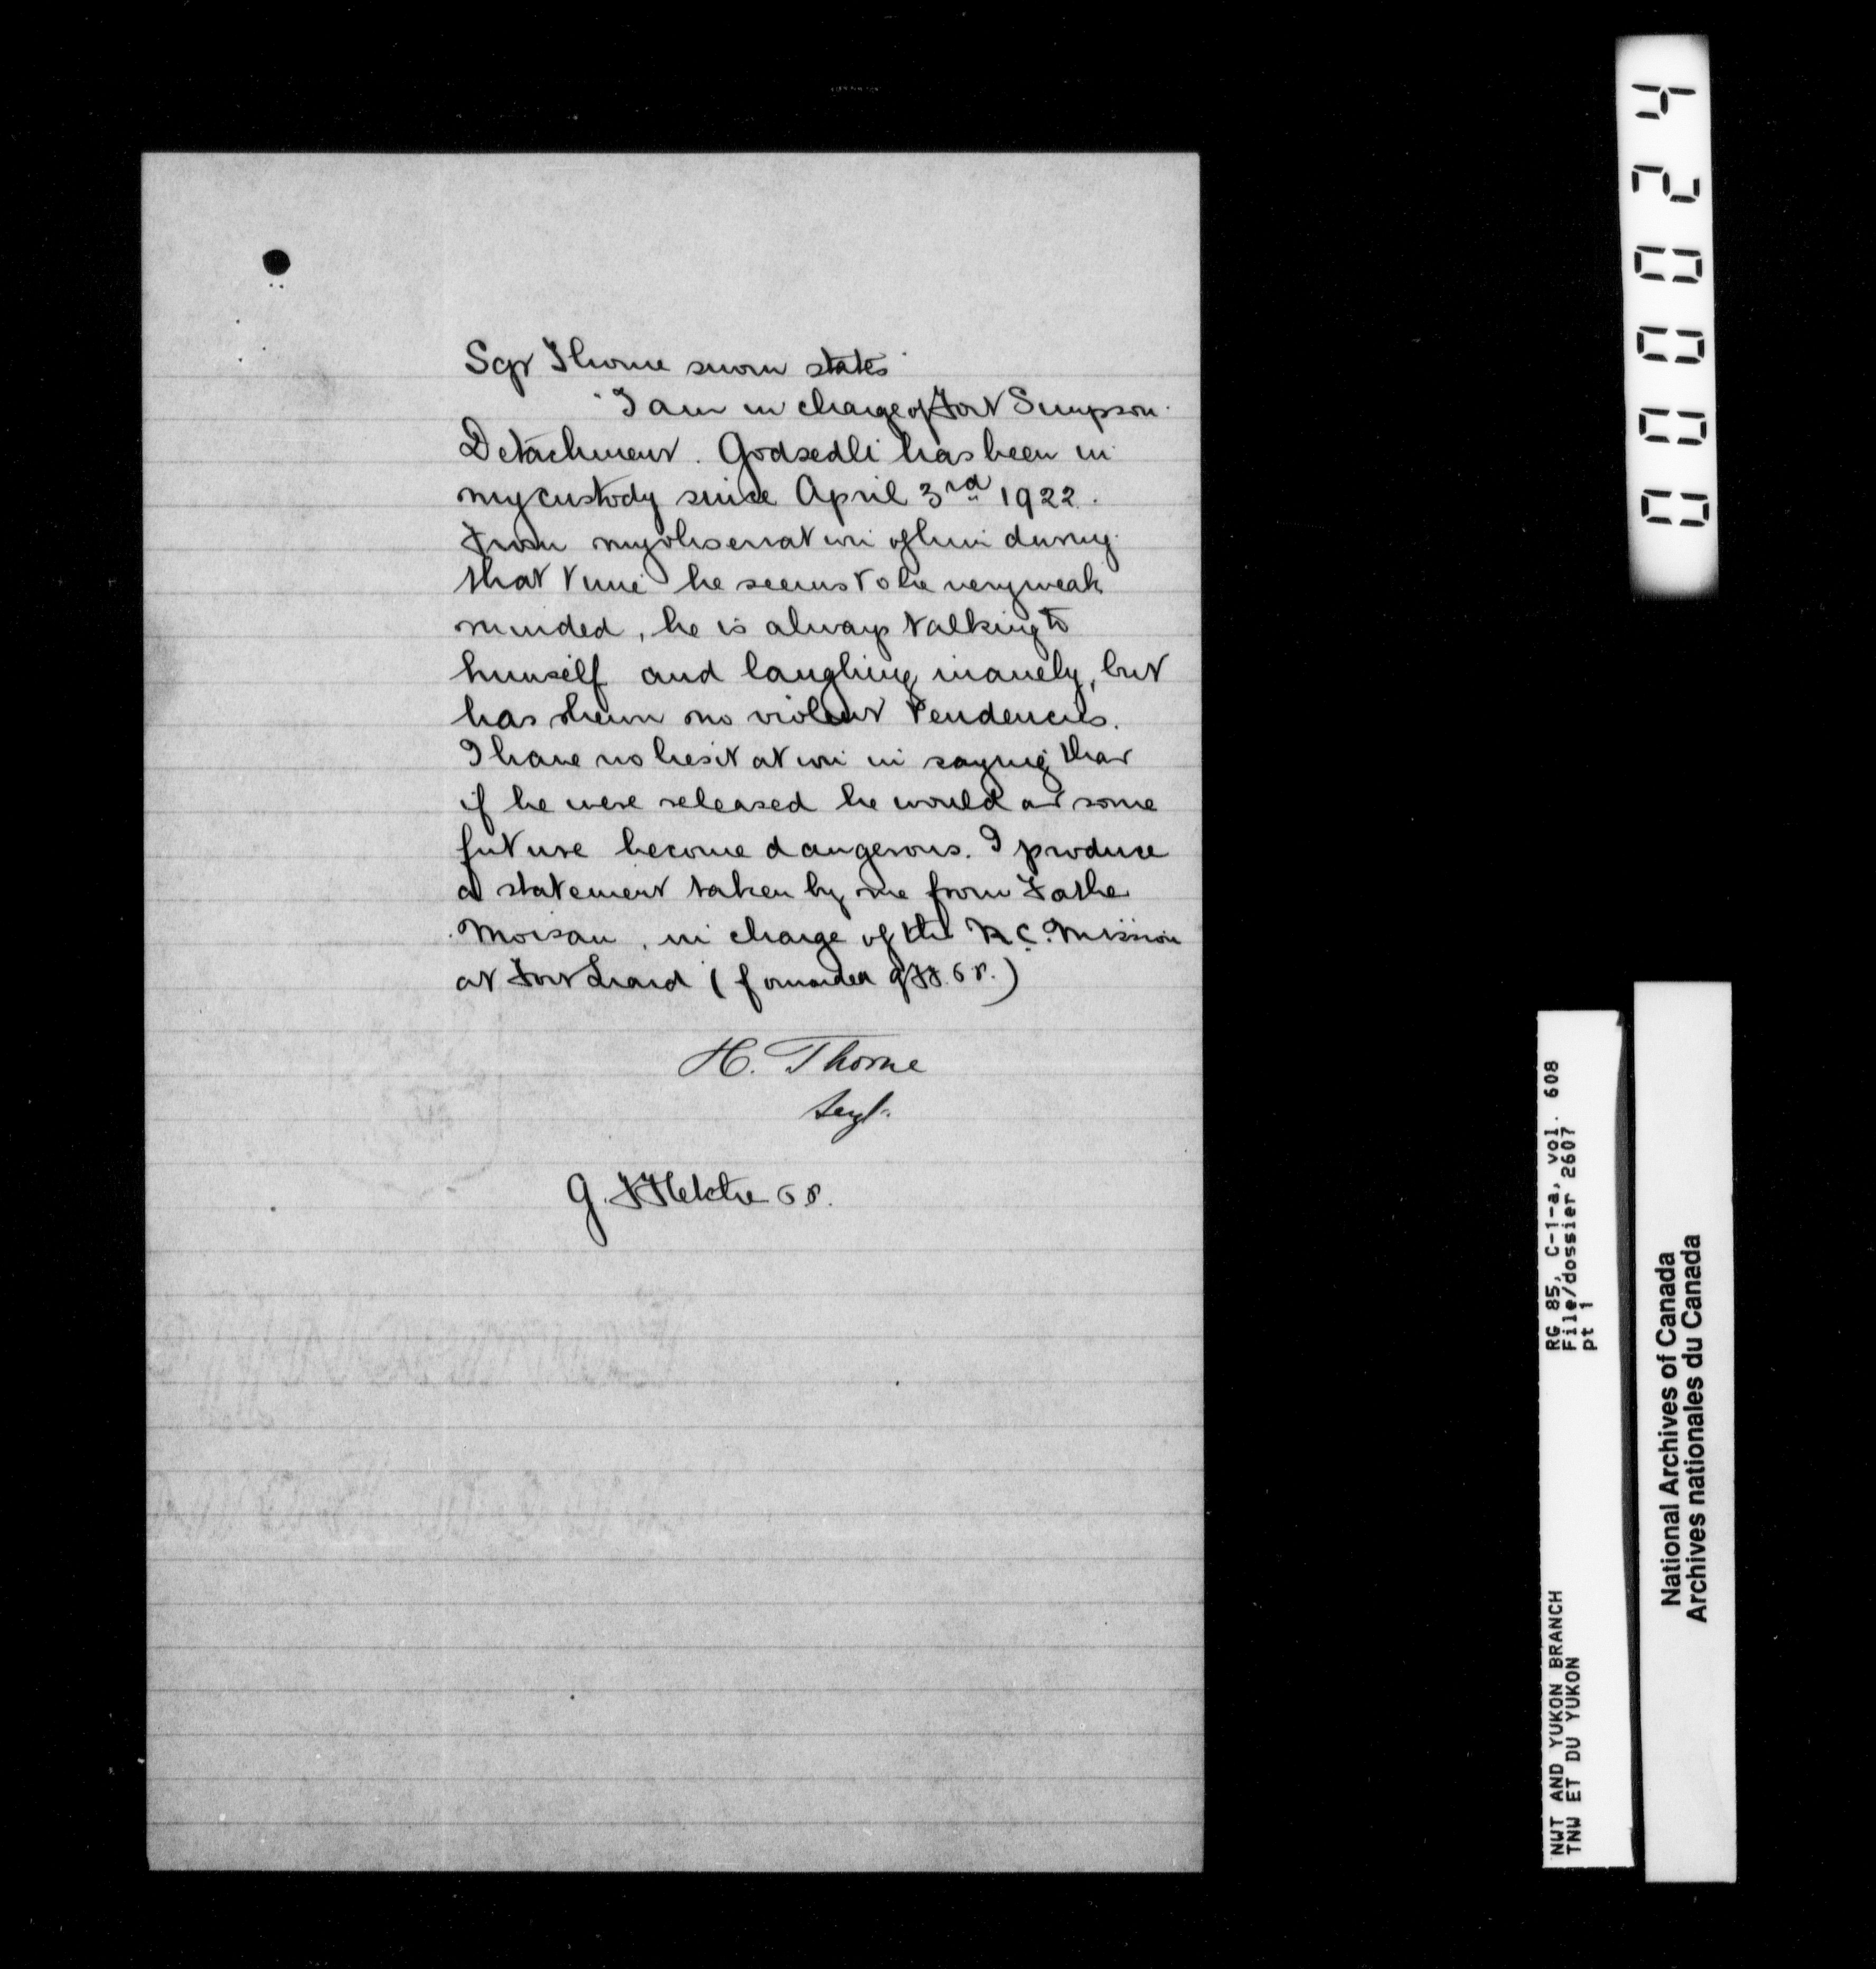 Sgt Thorne sworn states
"I am in charge of Fort Simpson
Detachment. Godsedli has been in
my custody since April 3rd 1922.
From my observation of him during
that time he seems to be very weak
minded, he is always talking to
himself and laughing inanely, but
has shewn no violent tendencies.
I have no hesitation in saying that
if he were released he would at some
future become dangerous. I produce
a statement taken by me from Father
Moisan, in charge of the R.C. Mission
at Fort Liard (forwarded
H. Thorne
Sergt.
G. F Fletcher
000024
RG 85, C-1-a, vol. 608
File/dossier 2607
pt 1
NWT AND YUKON BRANCH
TNW ET DU YUKON
National Archives of Canada
Archives nationales du Canada